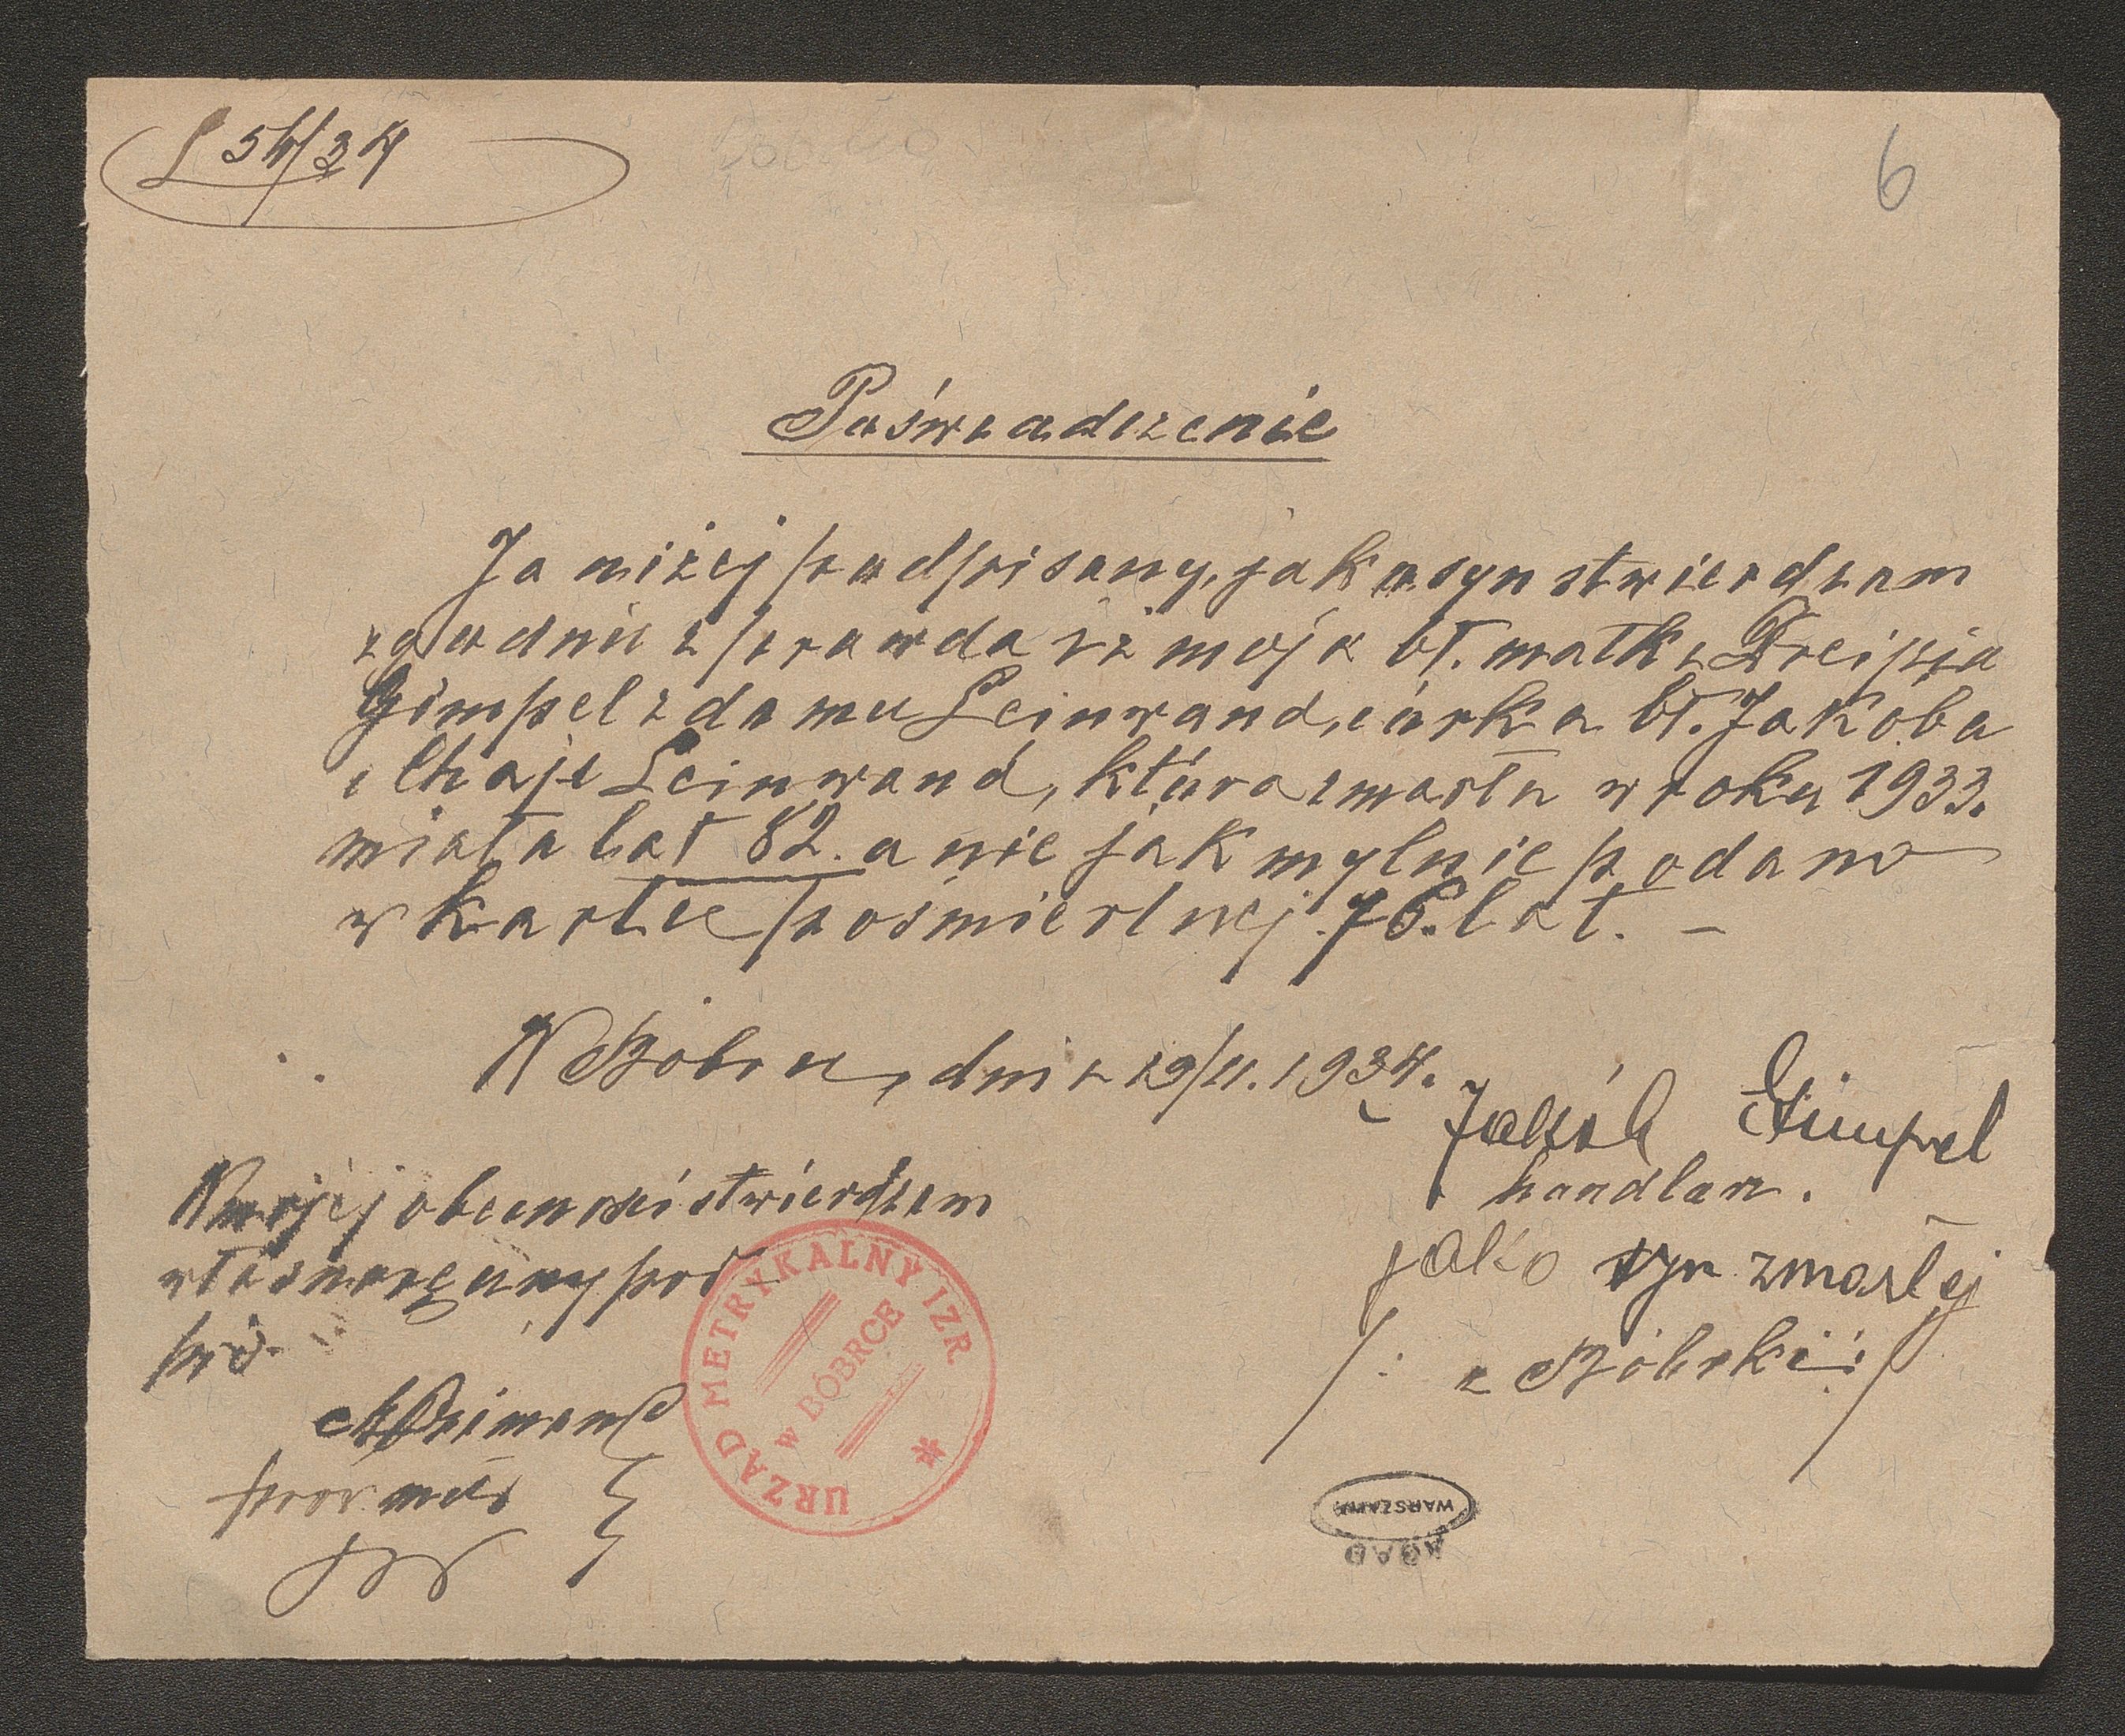 L 54/34
6
Poświadczenie
Ja niżej podpisany, jako syn stwierdzam
zgodnie z prawdą iż moja bł. matka Dreipja
Gimpel z domu Leinwand, córka bł. Jakóba
i Chaje Leinwand, która zmarła w roku 1933.
miała lat 82. a nie jak mylnie podano
w kartce pośmiertnej 76. lat. –
W Bóbrce, dnia 29/11. 1934.
Jakób Gimpel
handlarz.
jako syn zmarłej
/: z Bóbrki :/
W mojej obecności stwierdzam
własnoręczny pod-
pis.
URZĄD METRYKALNY IZR.
w BÓBRCE
WARSZAWA
AGAD